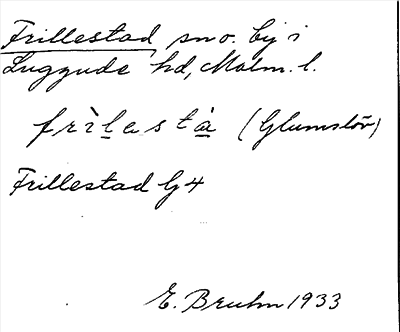 Frillestad sno. by i
Luggude hd, Malm. l.
frìlastà (Glumslöv)
Frillestad G 4
E. Bruhn 1933